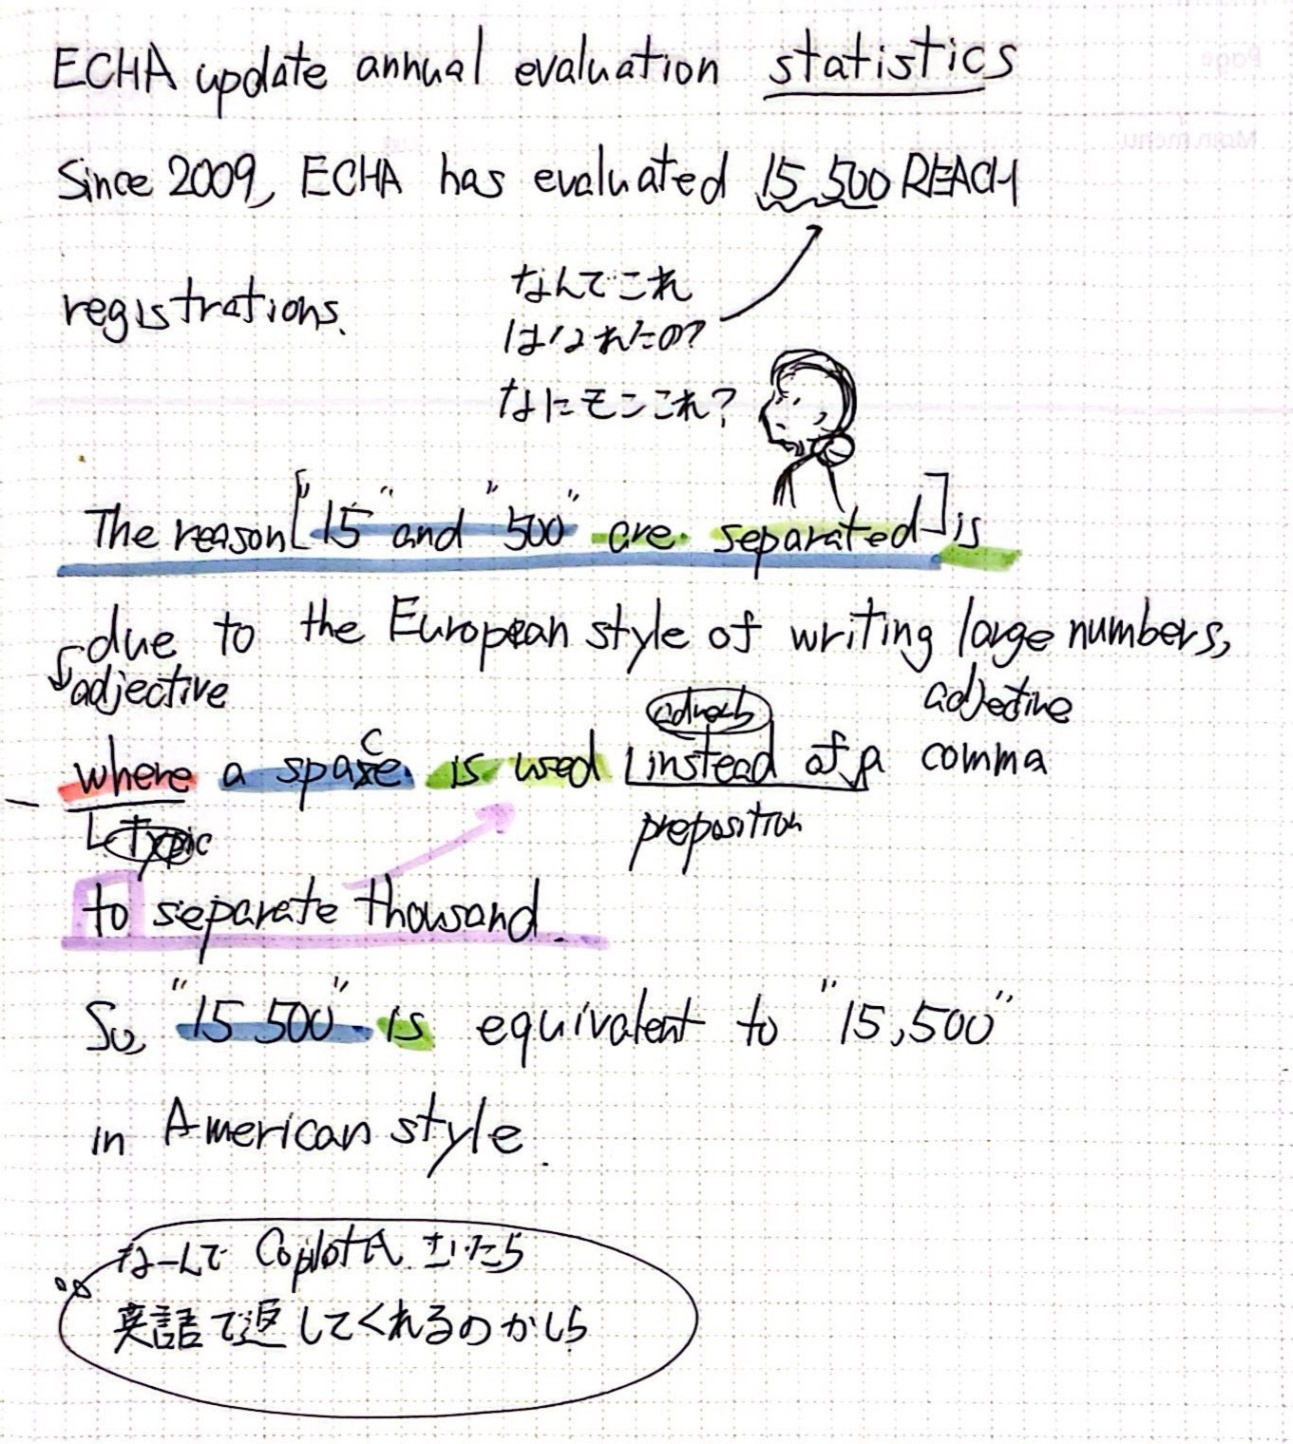 ECHA update annual evaluation statistics
Since 2009, ECHA has evaluated 15 500 REACH
registrations.
なんでこれ
はなれたの?
なにモンこれ?
The reason ["15" and "500" are separated] is
due to the European style of writing large numbers,
adjective
adverb
adjective
where a space is used instead of a comma
preposition
to separate thousand.
So, "15 500" is equivalent to "15,500"
in American style.
なーんで Copilot氏 きいたら
英語で返してくれるのかしら